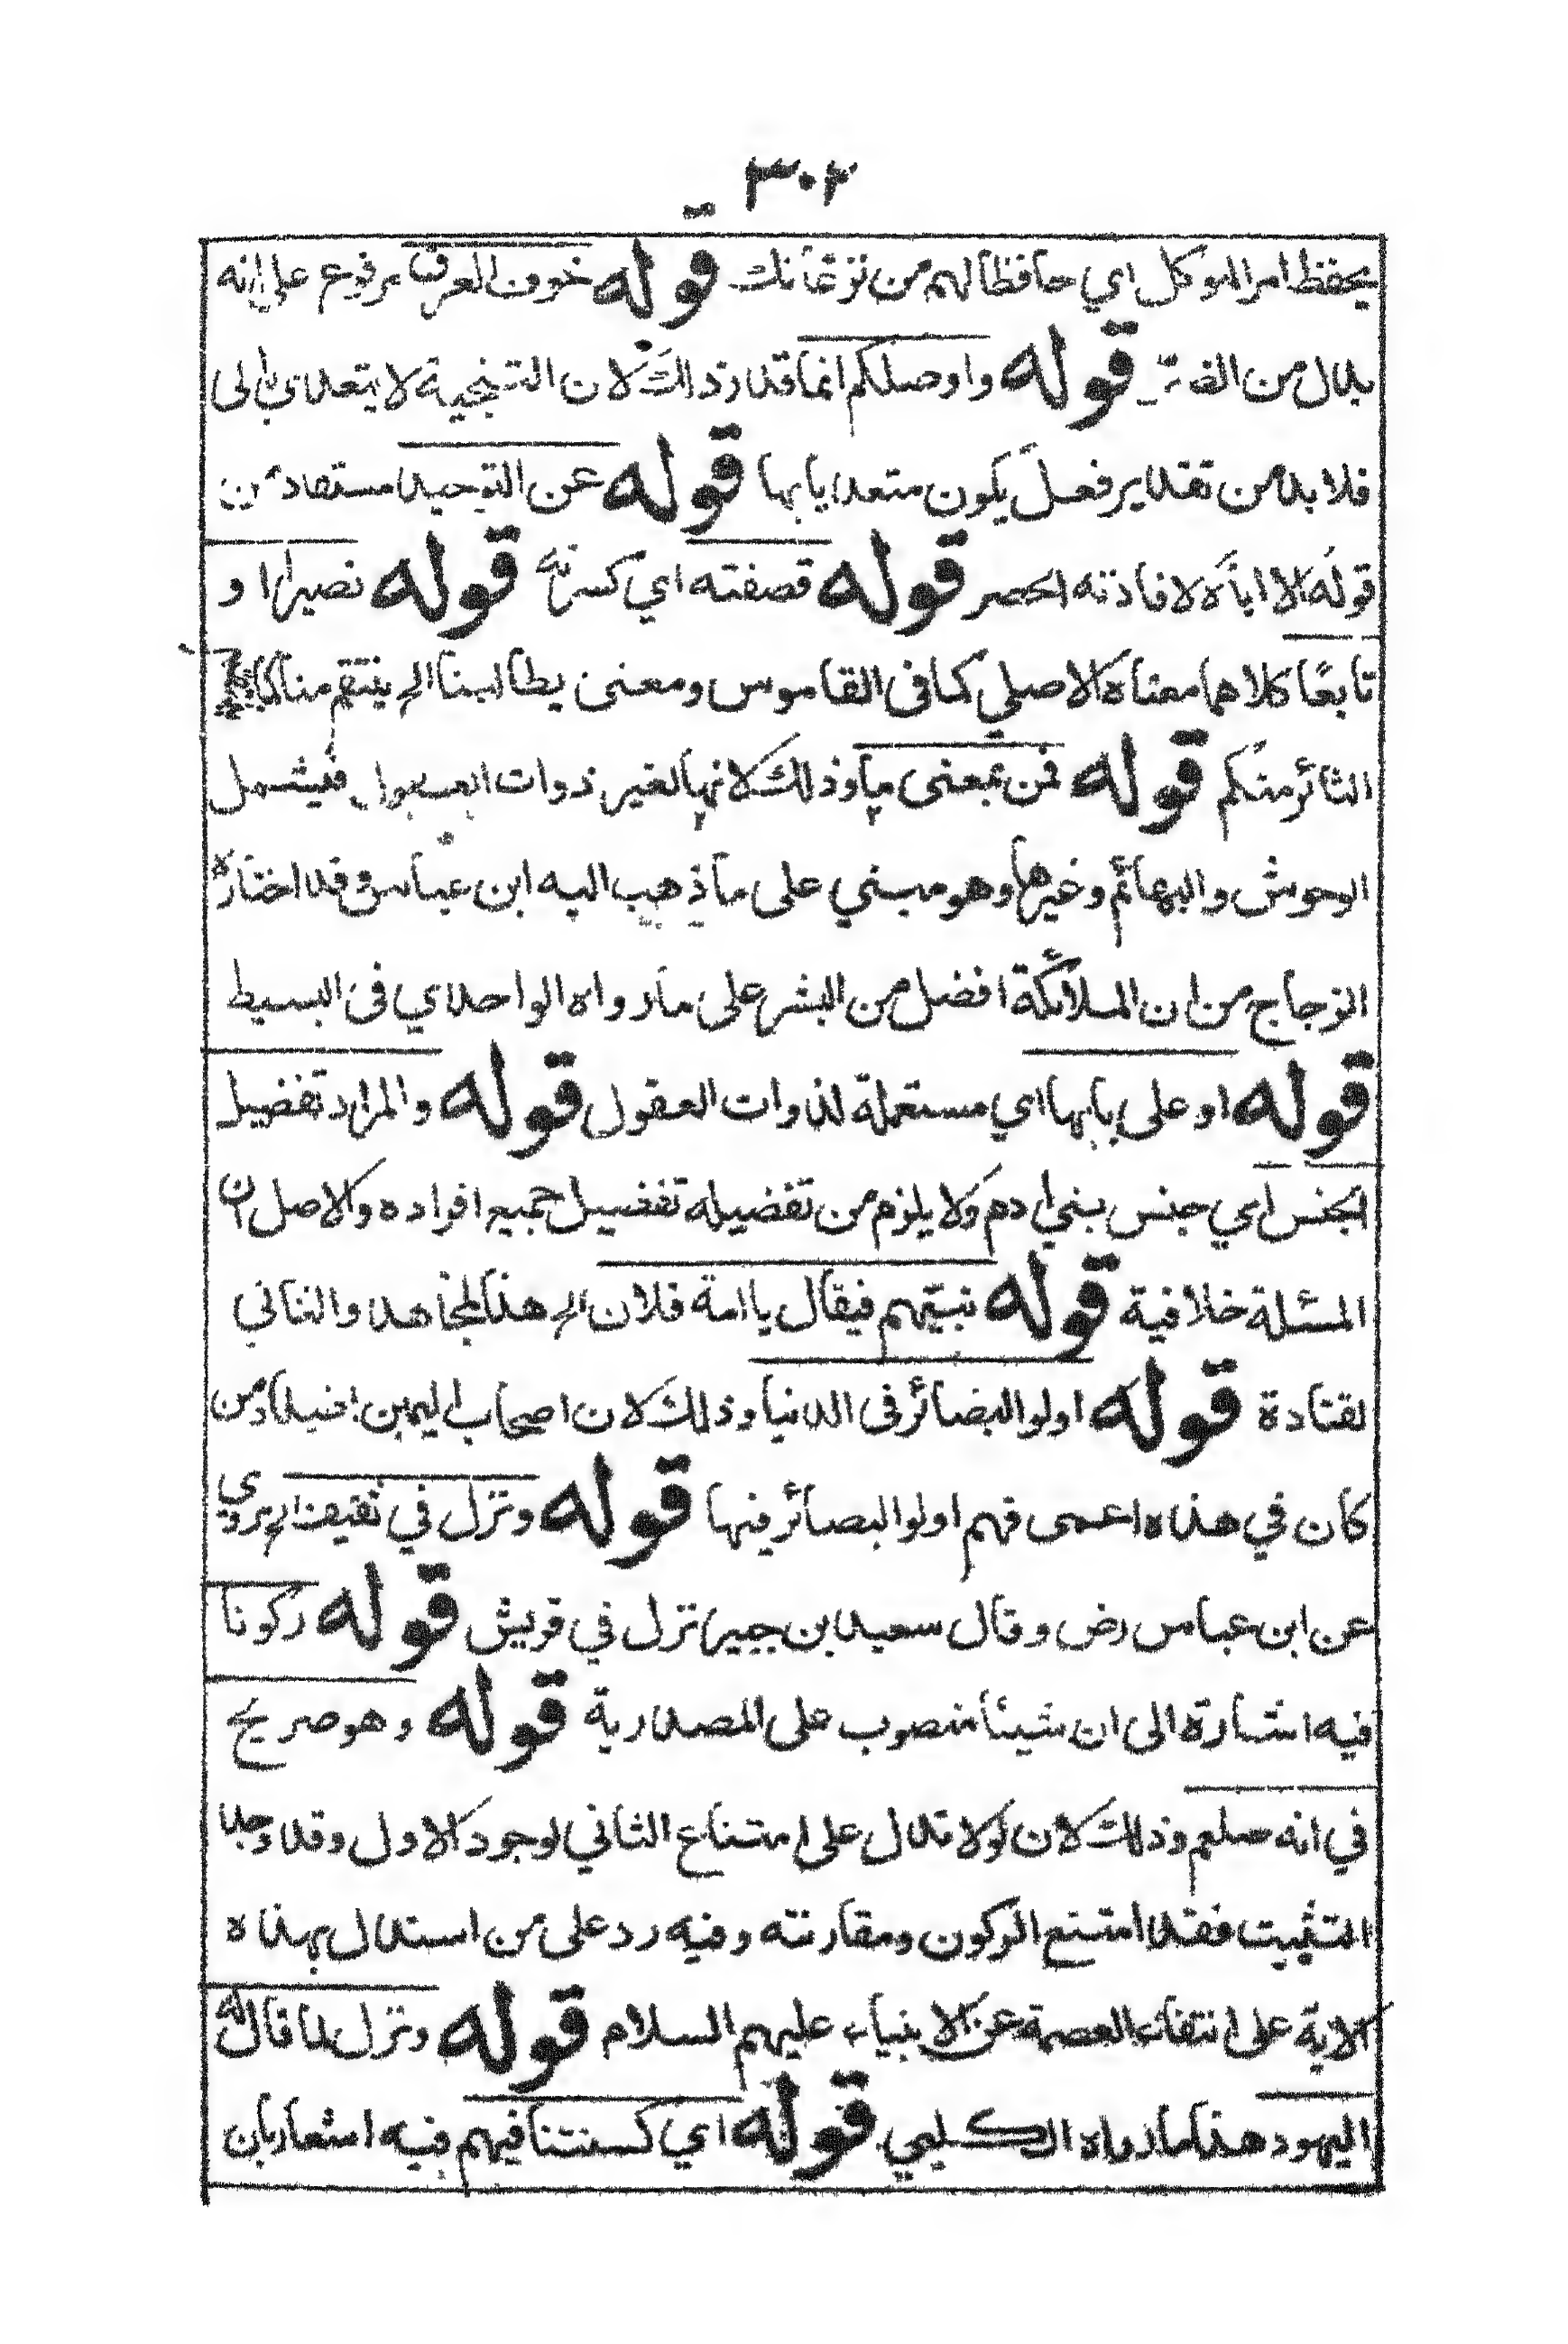 ٣٠٢
يحفظ امر الموكل اي حافظا لهم من نزغانك قوله خوف الغرق مرفوع على انه
بدل من الضر قوله واوصلكم انما قدر ذلك لان التنجية لا يتعدي بالى
فلا بد من تقدير فعل يكون متعديا بها قوله عن التوحيد مستفاد من
قوله الا اياه لافادته الحصر قوله قصفته اي كسرته قوله نصيرا او
تابعًا كلاهما معناه الاصلي كما في القاموس ومعنى يطالبنا الخ ينتقم منا كما
الثائر منكم قوله فمن بمعنى ما وذلك لانها لغير ذوات العقول فيشمل
الوحوش والبهائم وغيرها وهو مبني على ما ذهب اليه ابن عباس وقد اختاره
الزجاج من ان الملائكة افضل من البشر على ما رواه الواحدي في البسيط
قوله او على بابها اي مستعملة لذوات العقول قوله والمراد تفضيل
الجنس اي جنس بني ادم ولا يلزم من تفضيله تفضيل جميع افراده والاصل ان
المسئلة خلافية قوله نبيهم فيقال يا امة فلان الخ هذا لمجاهد والثاني
لقتادة قوله اولوا البصائر في الدنيا وذلك لان اصحاب اليمين اخيار من
كان في هذه اعمى فهم اولوا البصائر فيها قوله ونزل في ثقيف الخ يروي
عن ابن عباس رض وقال سعيد ابن جبير نزل في قريش قوله ركونا
فيه اشارة الى ان شيئا منصوب على المصدرية قوله وهو صريح
في انه صلعم وذلك لان لولا تدل على امتناع الثاني لوجود الاول وقد وجد
التثبيت فقد امتنع الركون ومقارنته وفيه رد على من استدل بهذه
الاية على انتفاء العصمة عن الانبياء عليهم السلام قوله ونزل لما قال له
اليهود هذا ما رواه الكلبي قوله اي كسنتنا فيهم فيه اشعار بان